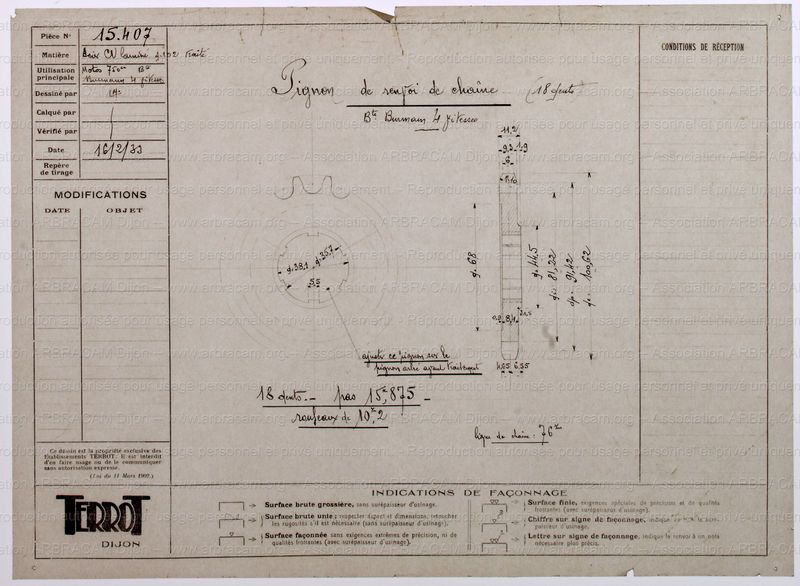 Pièce N° 15.407
Matière
Utilisation
principale
Motos 750cm Bte
Burmann 4 vitesses
Dessiné par
Calqué par
Vérifié par
Date 16/2/33
Repère
de tirage
MODIFICATIONS
DATE OBJET
Pignon de renvoi de chaîne (18 dents)
Bte Burmann 4 vitesses
CONDITIONS DE RÉCEPTION
11,2
9,3 1,9
6
ø.38,1 ø.35,7
5,5
ø.68
ø.44,5
81,22
91,42
100,62
8,4
6,35
ajuster ce pignon sur le
pignon arbre avant traitement
18 dents.- pas 15,875 -
rouleaux de 10,2
ligne de chaîne : 76
Ce dessin est la propriété exclusive des
Etablissements TERROT. Il est interdit
d'en faire usage ou de le communiquer
sans autorisation expresse.
(Loi du 11 Mars 1902.)
TERROT
DIJON
INDICATIONS DE FAÇONNAGE
Surface brute grossière, sans surépaisseur d'usinage.
Surface brute unie ; respecter aspect et dimensions, retoucher
les rugosités s'il est nécessaire (sans surépaisseur d'usinage).
Surface façonnée sans exigences extrêmes de précision, ni de
qualités frottantes (avec surépaisseur d'usinage).
Surface finie, exigences spéciales de précision et de qualités
frottantes (avec surépaisseur d'usinage).
Chiffre sur signe de façonnage, indique
paisseur d'usinage.
Lettre sur signe de façonnage, indique le renvoi à un nota
nécessaire plus précis.
www.arbracam.org – Association ARBRACAM Dijon – Reproduction autorisée pour usage personnel et privé uniquement.